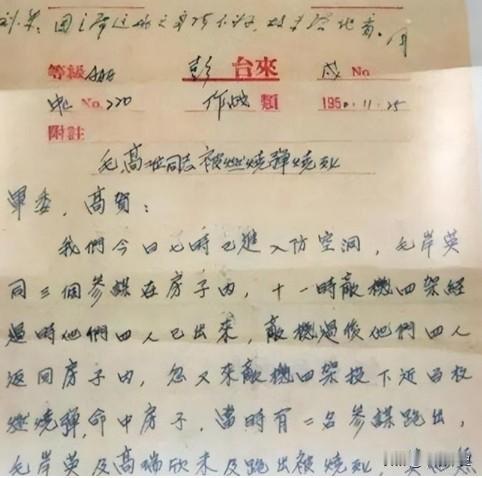 等級 AAAA 彭 台來 戍 No.
No. 220 作戰 類 1950.11.25
附註
毛高二同志被燃燒彈燒死
軍委,高賀:
我們今日七時已進入防空洞,毛岸英
同三個參謀在房子內,十一時敵機四架經
過時他們四人已出來,敵機過後他們四人
返回房子內,忽又來敵機四架投下近百枚
燃燒彈,命中房子,當時有二名參謀跑出,
毛岸英及高瑞欣未及跑出被燒死,其他無